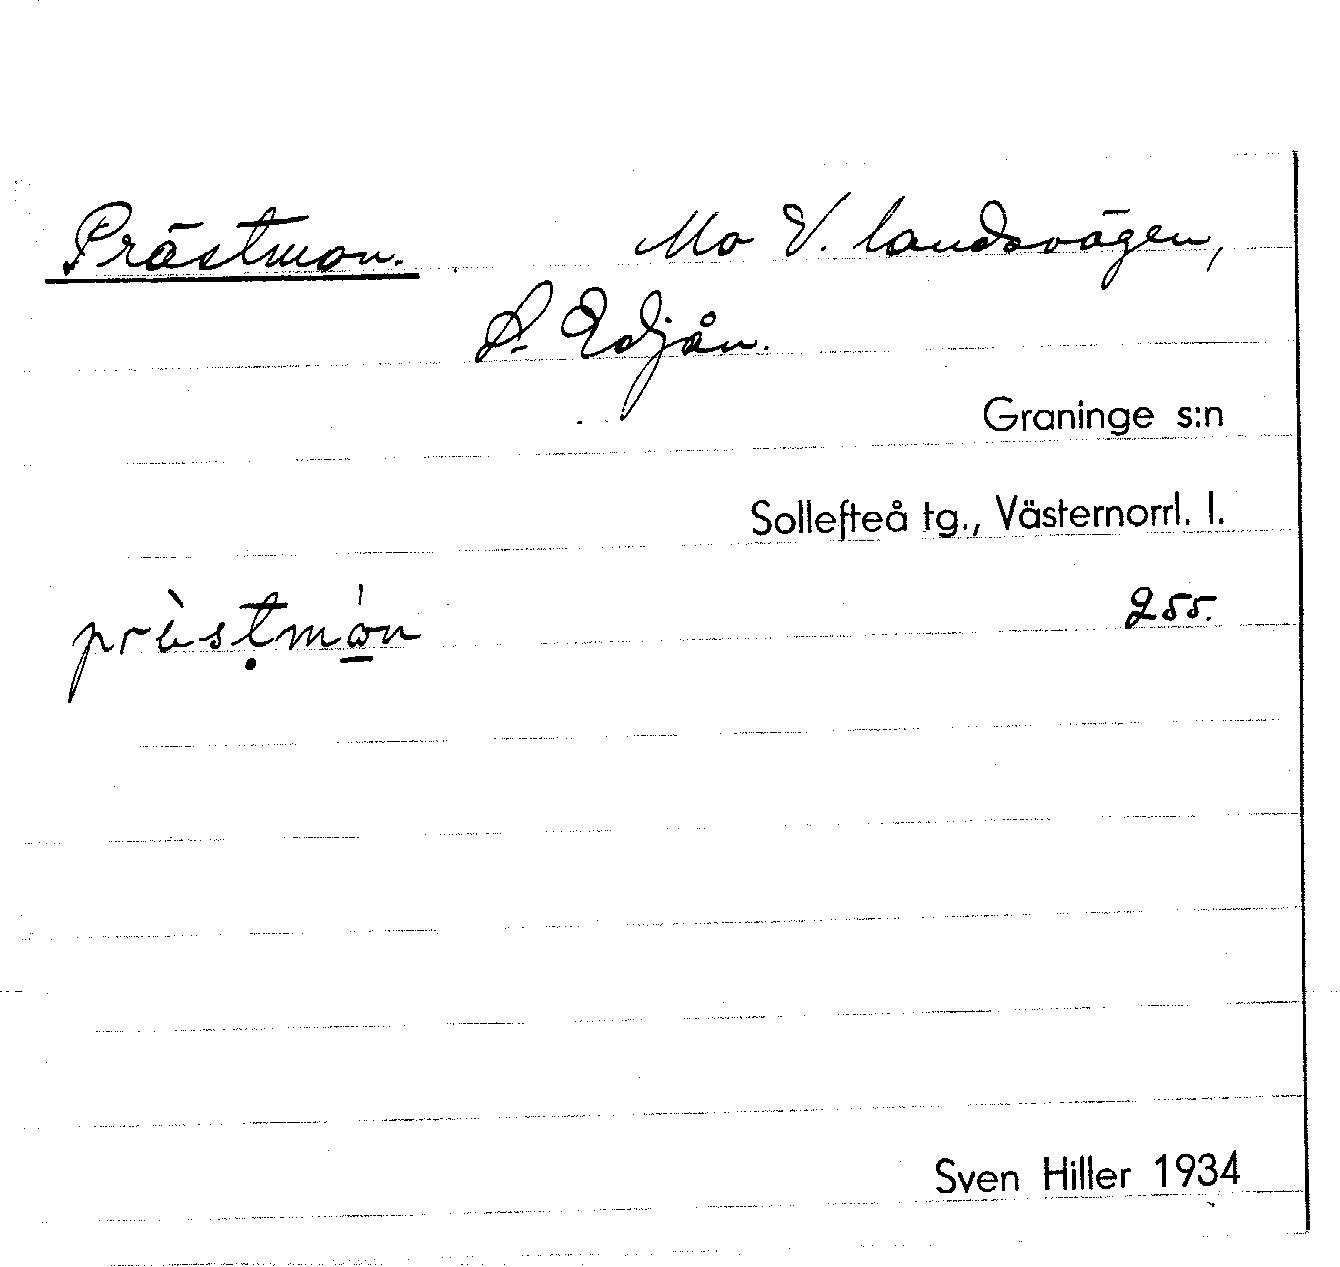 Prästmon. Mo V. landsvägen,
S. Edjån.
Graninge s:n
Sollefteå tg., Västernorrl. l.
255.
Sven Hiller 1934